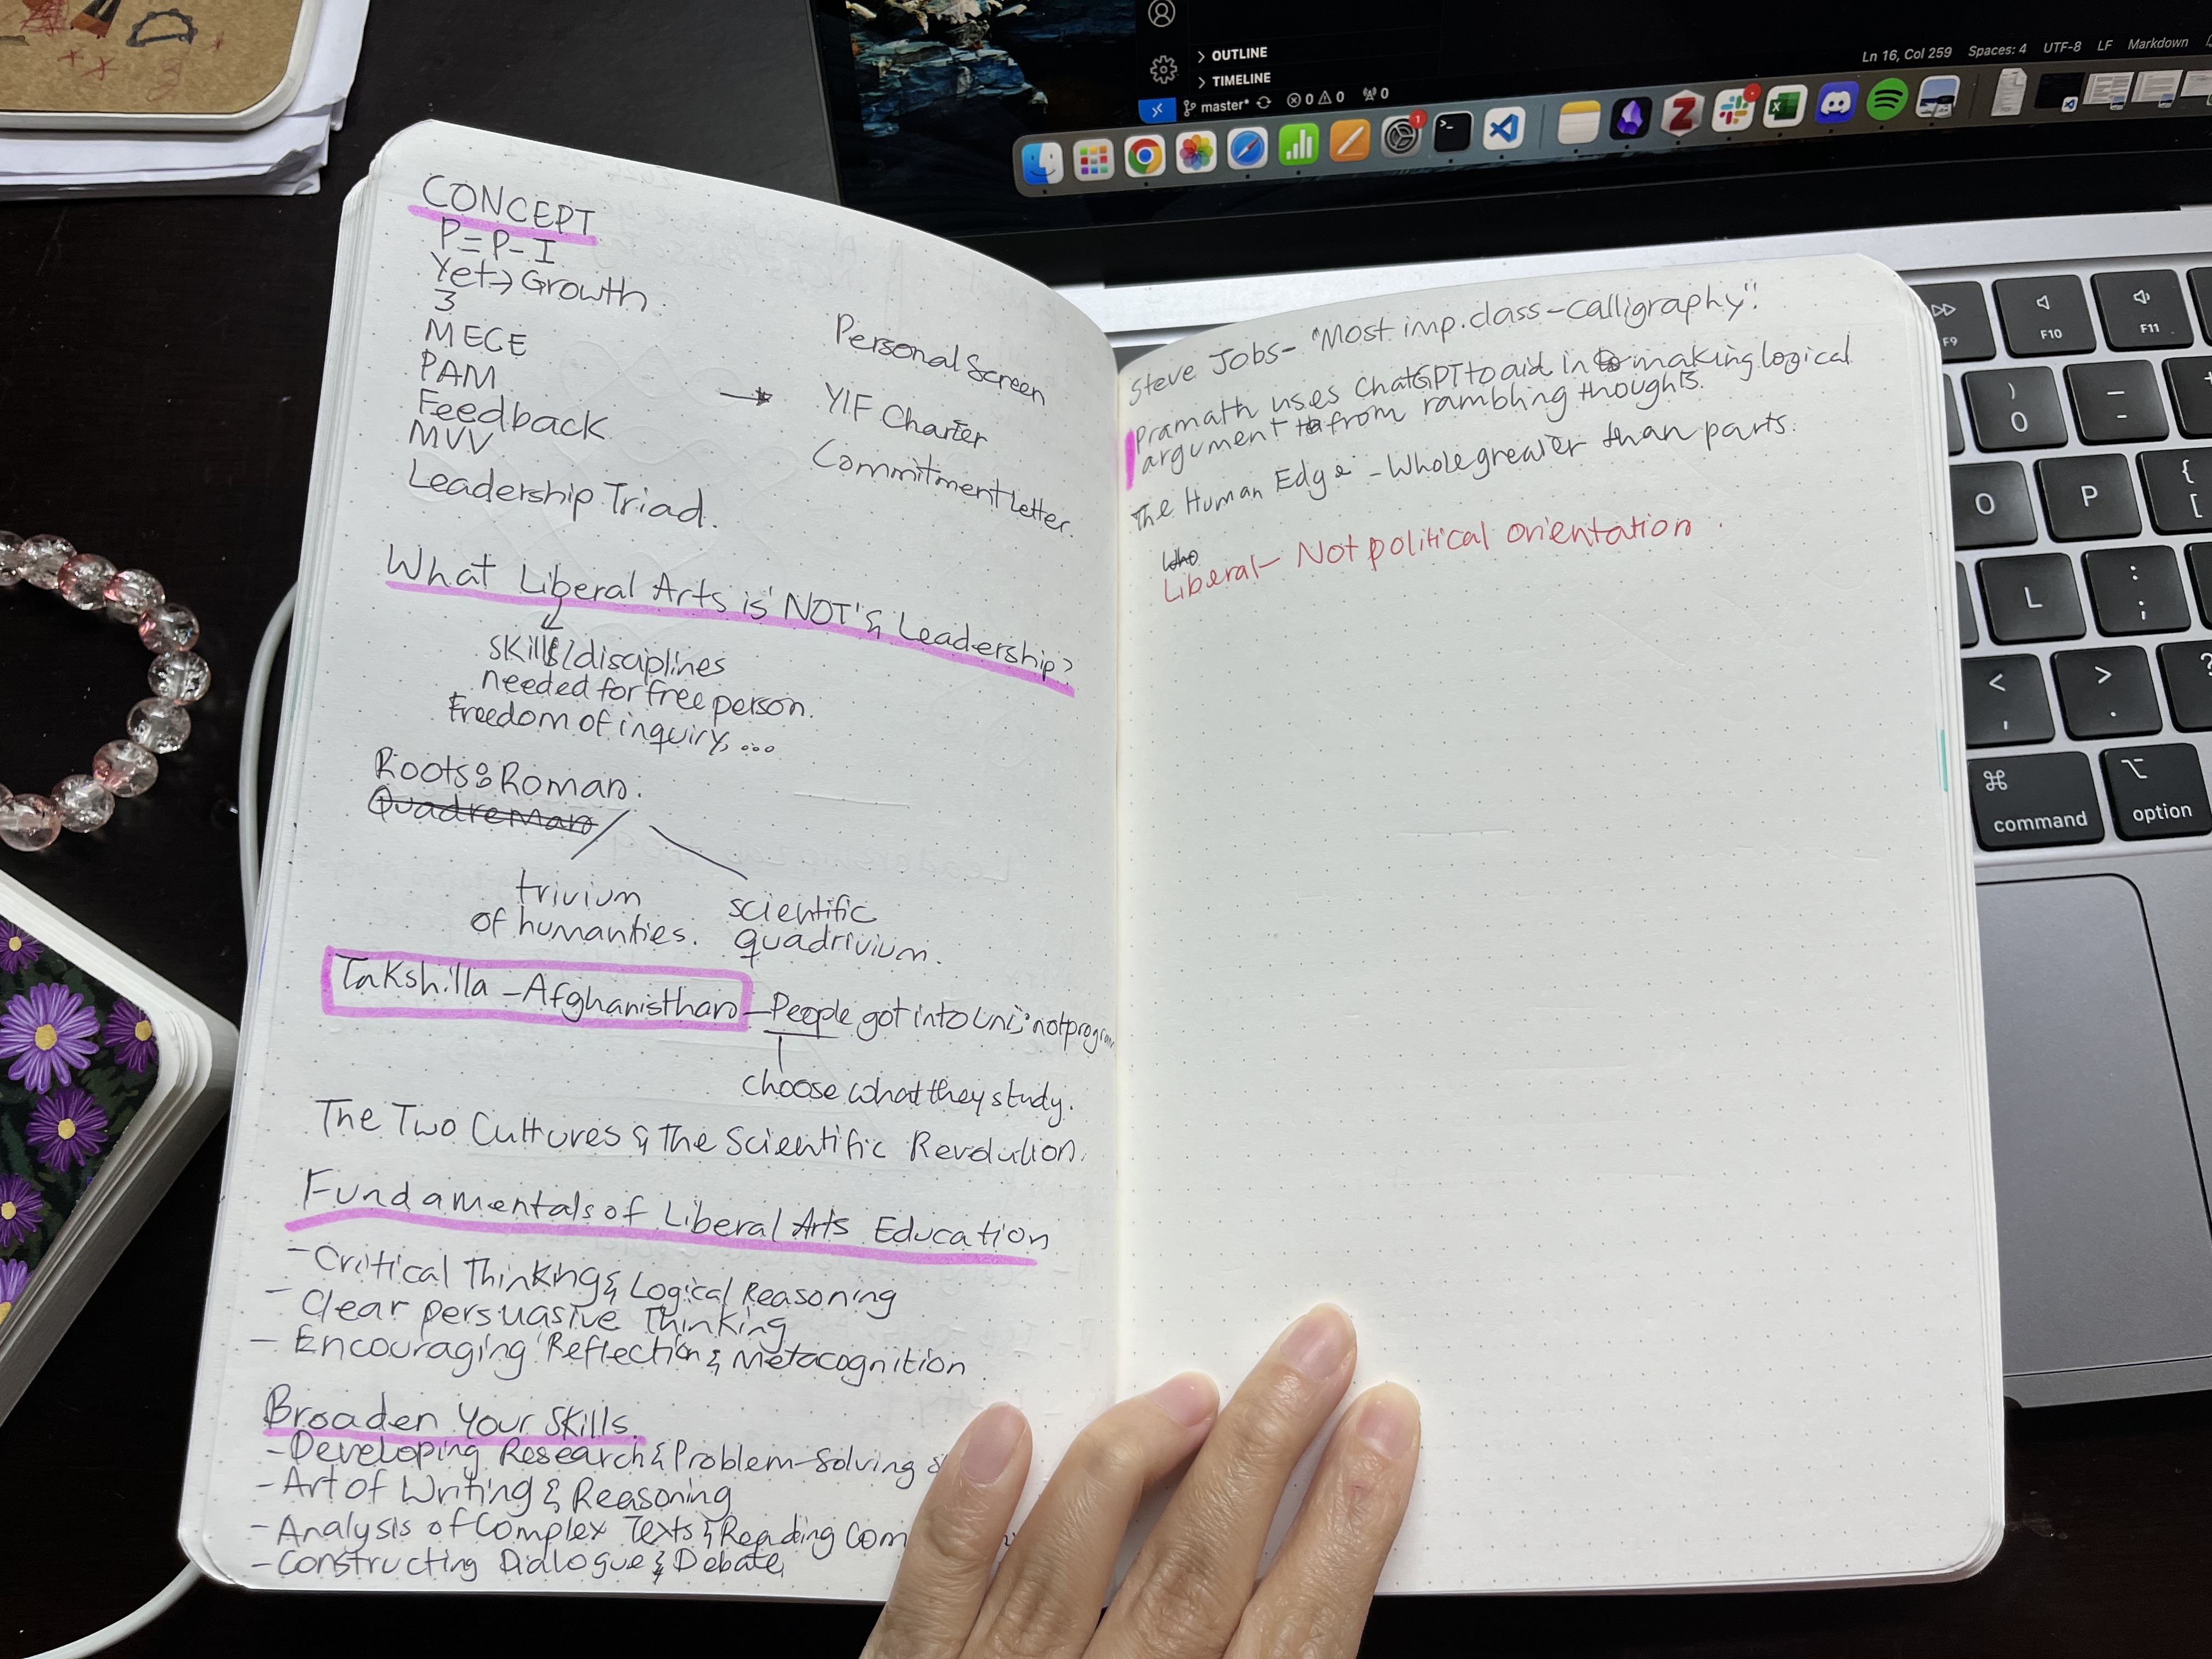 OUTLINE
TIMELINE
master* 0 0 0
Ln 16, Col 259 Spaces: 4 UTF-8 LF Markdown
CONCEPT
P=P-I
Yet→Growth.
3
MECE
PAM
Feedback
MVV
Leadership Triad.
→
Personal Screen
YIF Charter
Commitment Letter.
What Liberal Arts is 'NOT' & Leadership?
skills/disciplines
needed for free person.
Freedom of inquiry, ...
Roots: Roman.
Quadreman
trivium
of humanities.
scientific
quadrivium.
Takshilla - Afghanisthan - People got into Uni; not program
choose what they study.
The Two Cultures & The Scientific Revolution.
Fundamentals of Liberal Arts Education
- Critical Thinking & Logical Reasoning
- Clear persuasive Thinking
- Encouraging Reflection & Metacognition
Broaden Your Skills.
- Developing Research & Problem-Solving
- Art of Writing & Reasoning
- Analysis of Complex Texts & Reading Com
- Constructing Dialogue & Debate
Steve Jobs - "Most imp. class - calligraphy".
Pramath uses ChatGPT to aid in making logical
argument from rambling thoughts.
The Human Edge - Whole greater than parts.
Who
Liberal - Not political orientation.
F9
F10
F11
) 0
_ -
O
P
{ [
L
: ;
< ,
> .
?
⌘ command
⌥ option